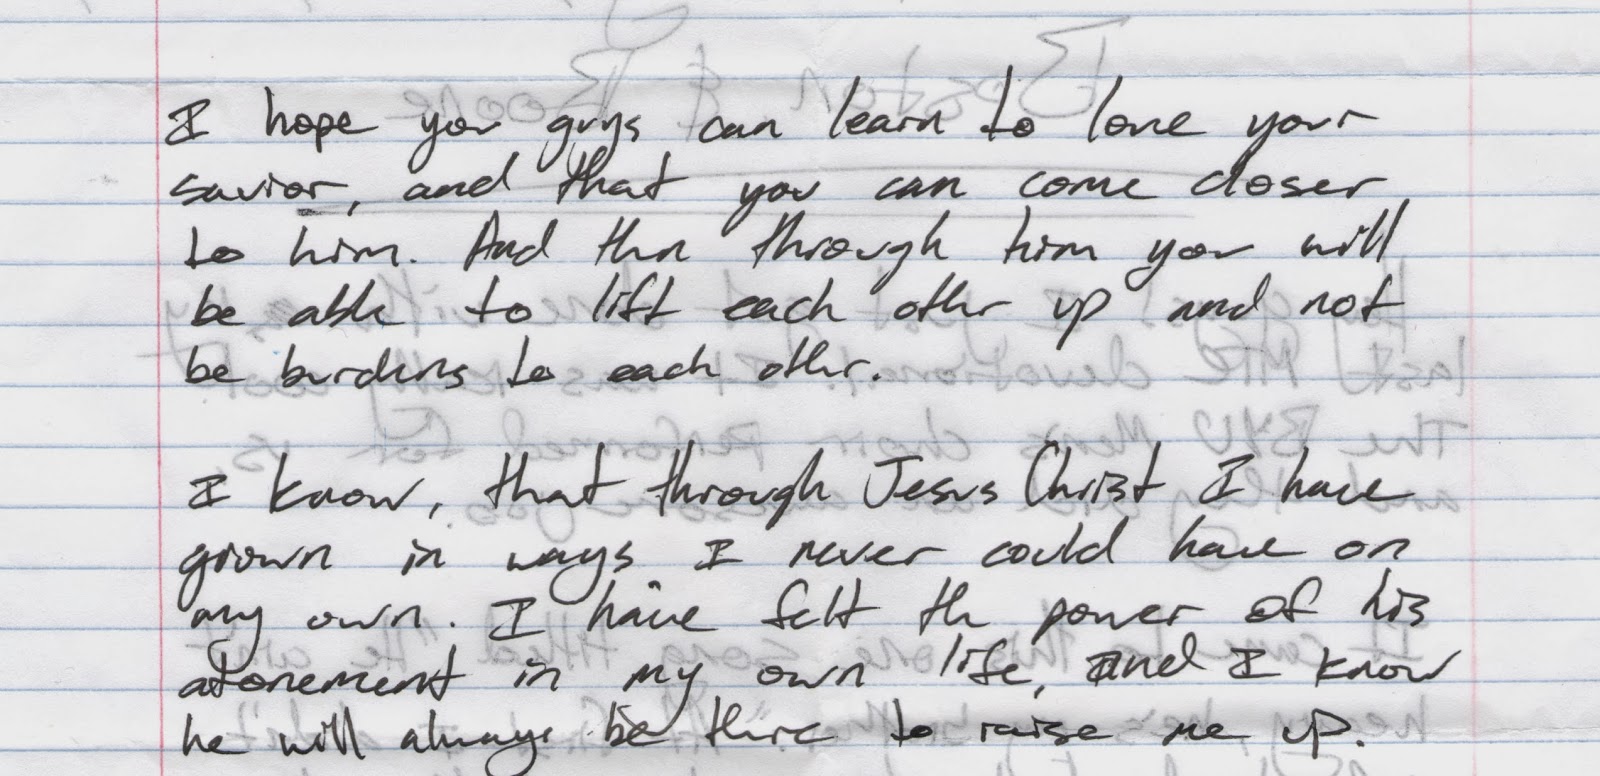 I hope you guys can learn to love your
savior, and that you can come closer
to him. And then through him you will
be able to lift each other up and not
be burdens to each other.
I know, that through Jesus Christ I have
grown in ways I never could have on
my own. I have felt the power of his
atonement in my own life, and I know
he will always be there to raise me up.